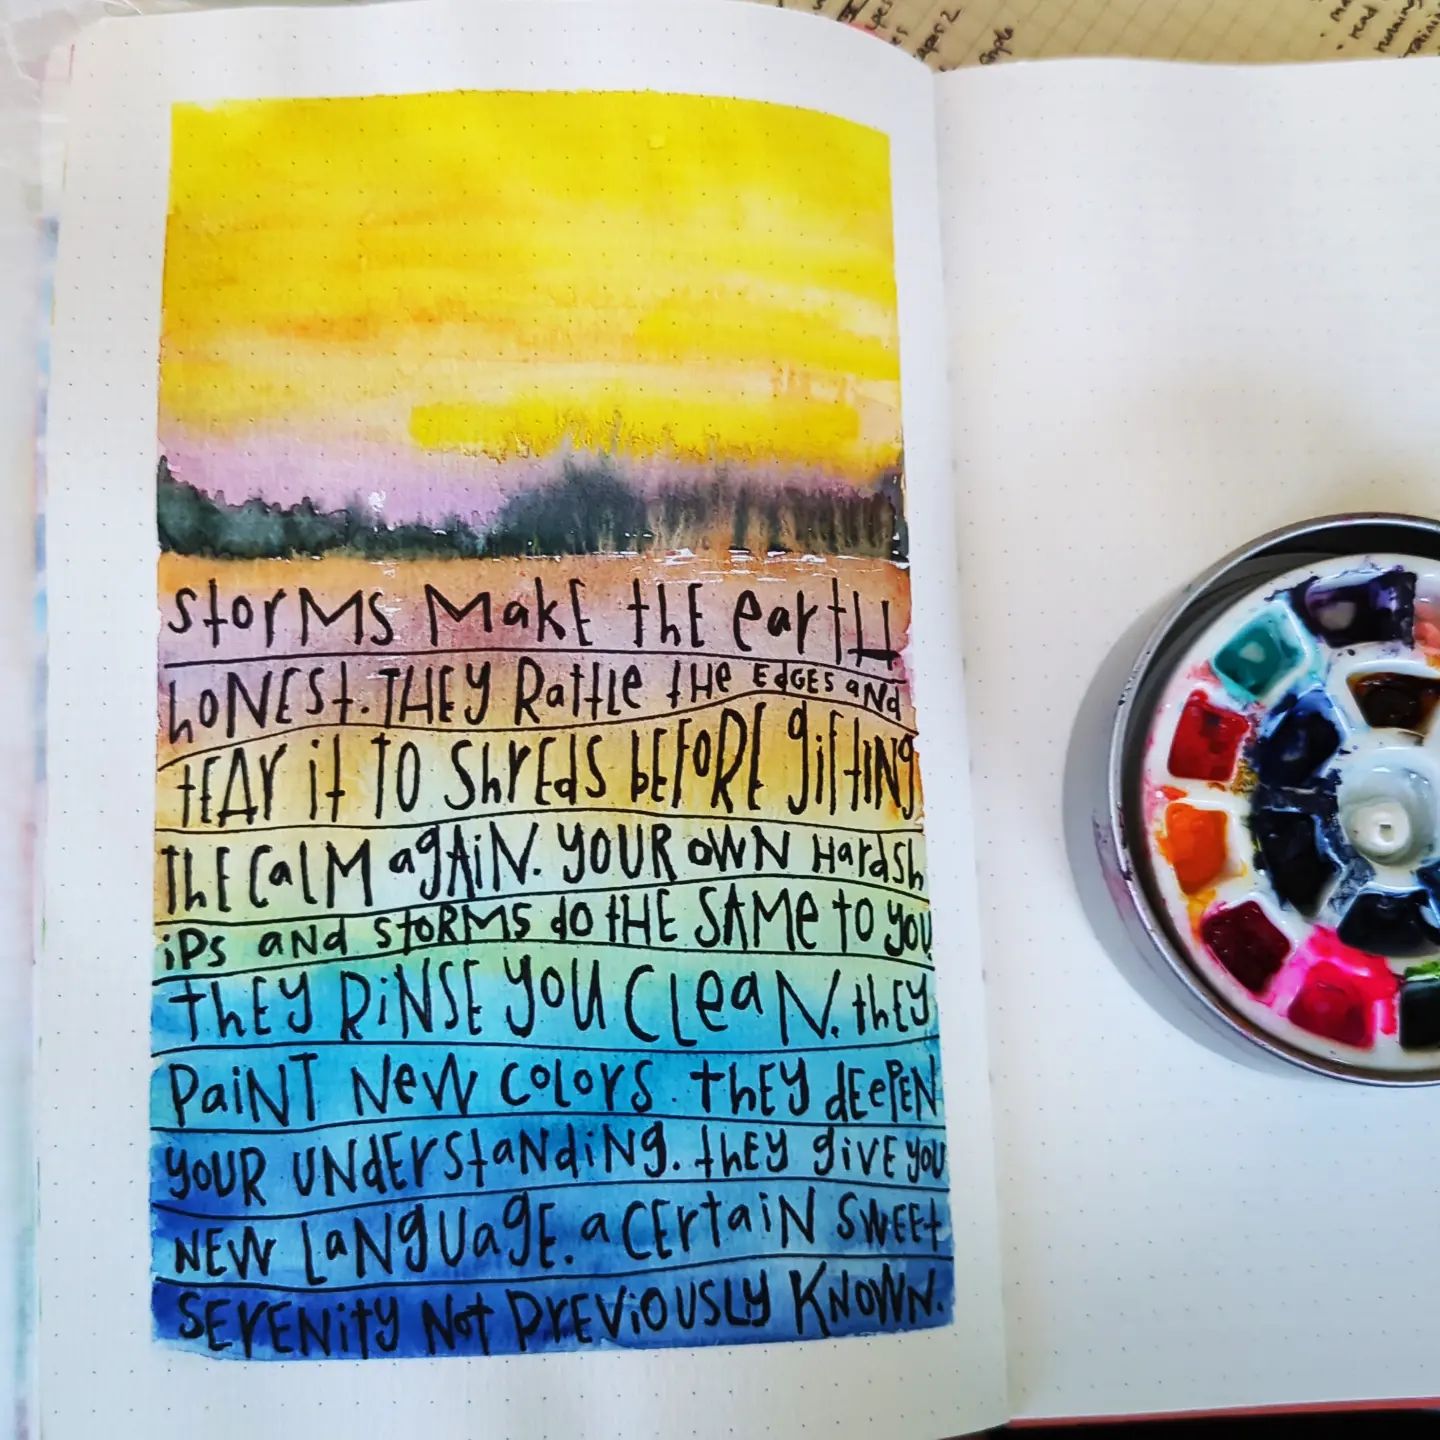 storMS Make thE earth
hoNESt. THEY Rattle tHe EdGES aNd
tEAr it TO ShrEds bEFoRE gifting
thE CalM agAiN. YOUR OWN Hardsh
iPs aNd stORMS do tHE SAMe to you.
thEY RiNSE you CleaN. thEy
PaiNT New colors. thEy dEePEN
your UNdErstaNdiNg. thEY giVE you
NEW LaNgUagE. a CErtaiN SwEEt
SErENity Not PrEViously KNOWN.
read